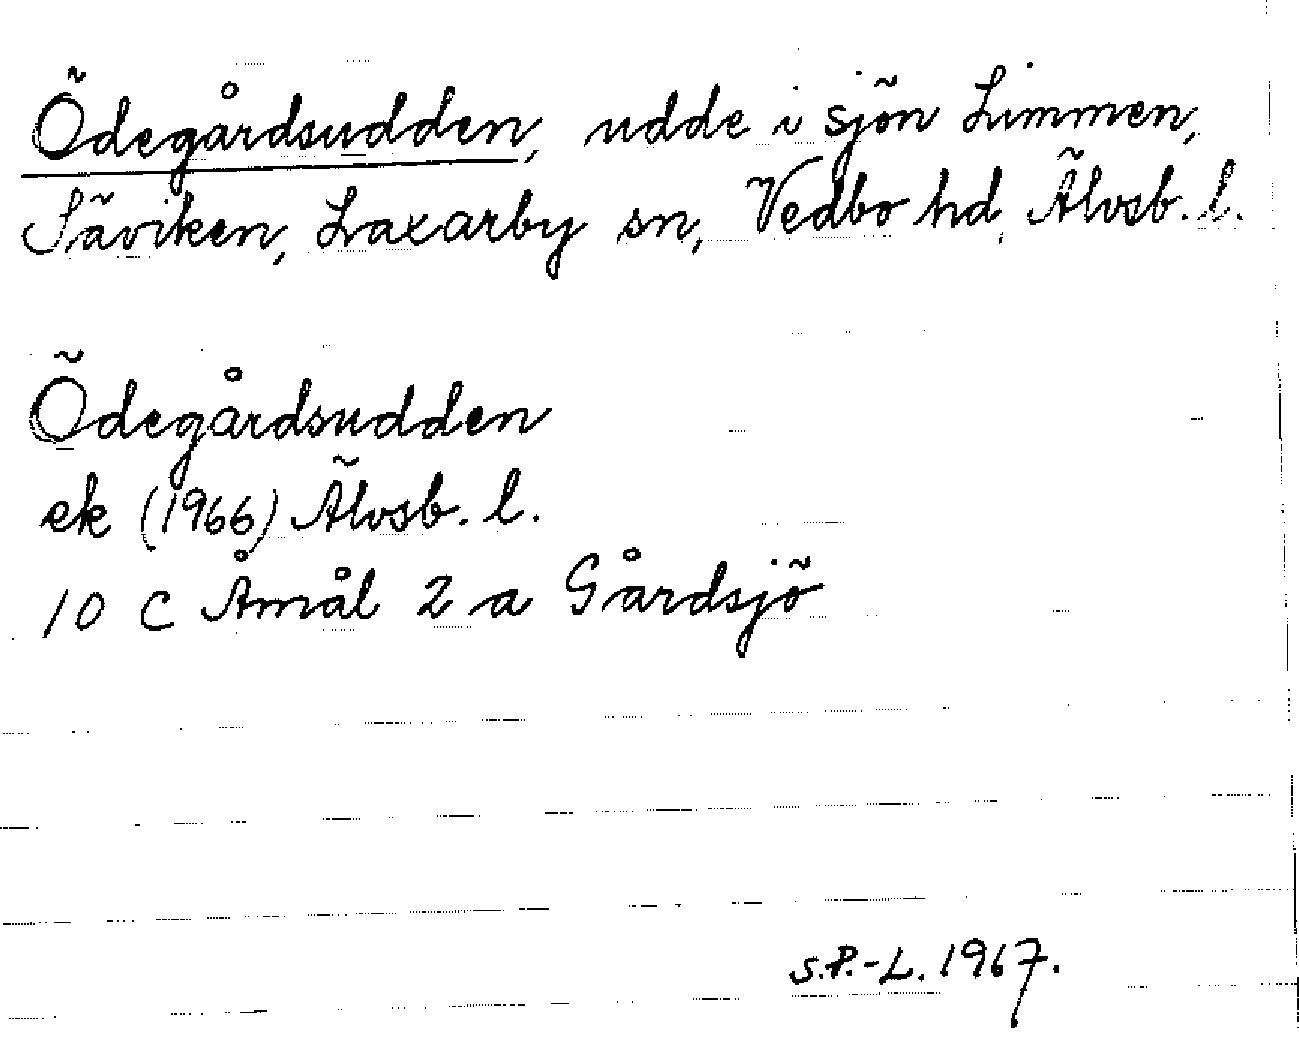 Ödegårdsudden, udde i sjön Limmen,
Säviken, Laxarby sn, Vedbo hd, Älvsb. l.
Ödegårdsudden
ek (1966) Älvsb. l.
10 C Åmål 2 a Gårdsjö
S.P.-L. 1967.